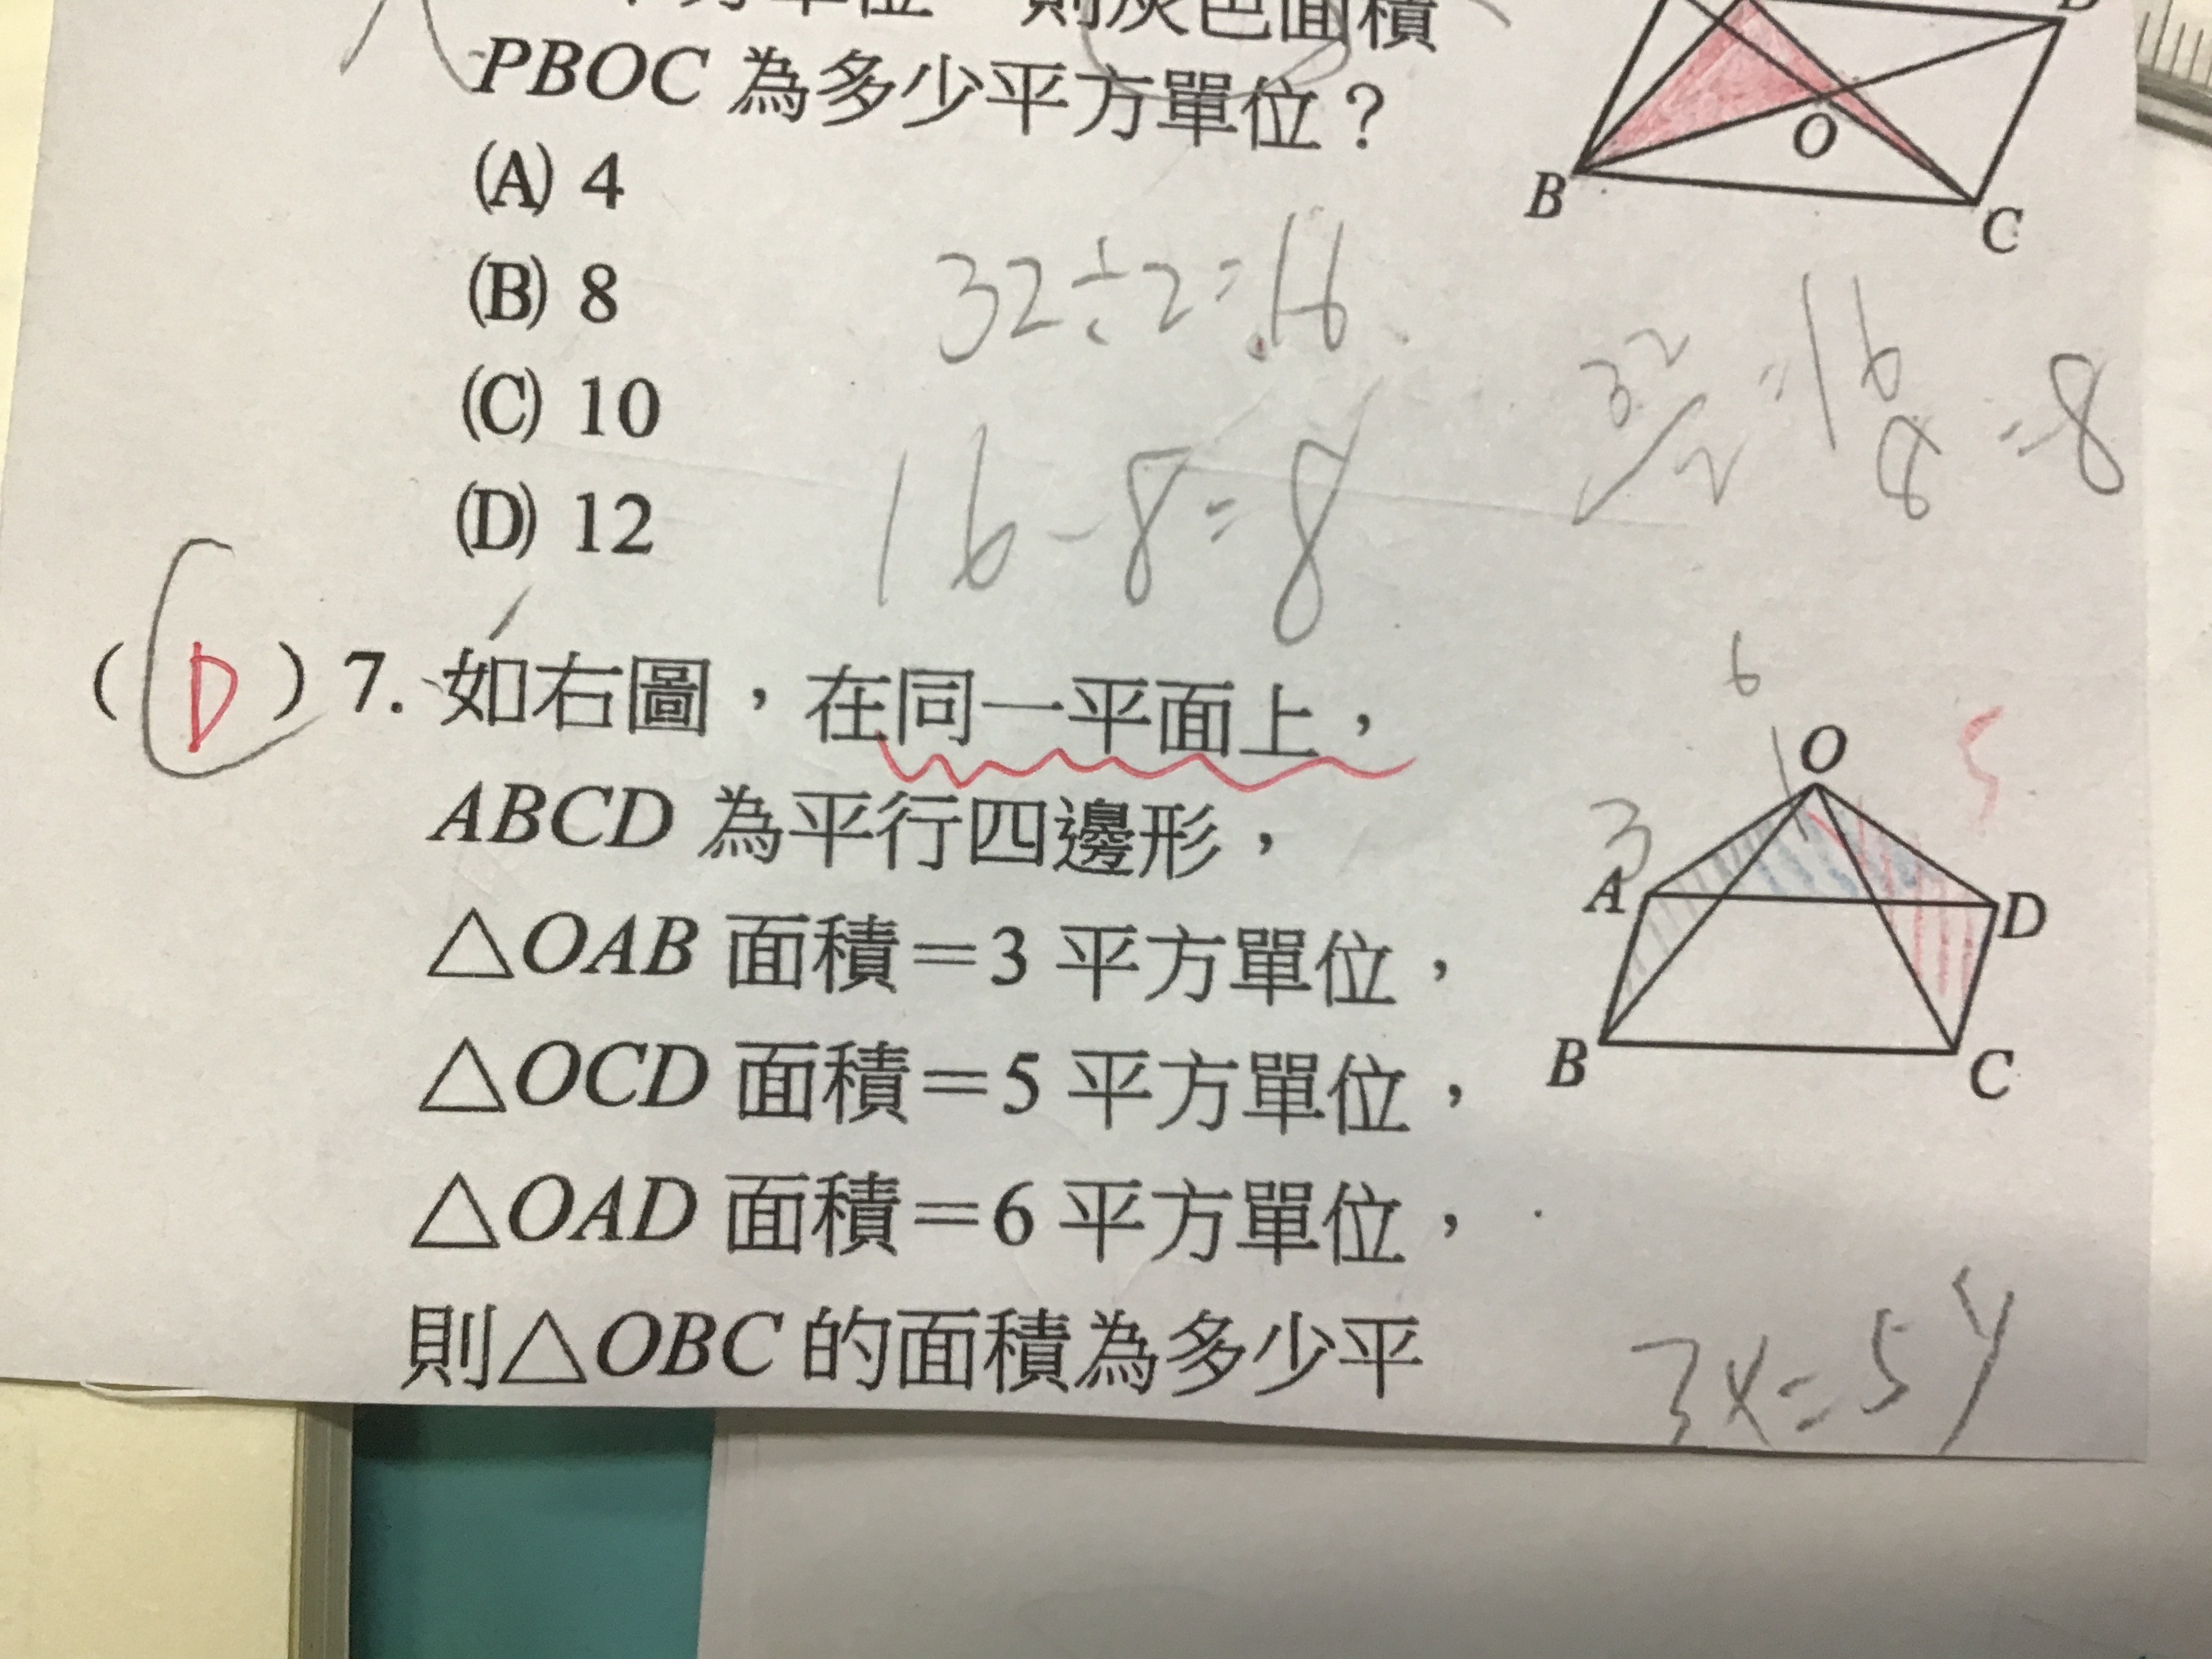 則灰色面積
PBOC 為多少平方單位？
(A) 4
(B) 8
(C) 10
(D) 12
O
B
C
32÷2=16
32/2=16
8=8
16-8=8
( D ) 7. 如右圖，在同一平面上，
ABCD 為平行四邊形，
△OAB 面積＝3 平方單位，
△OCD 面積＝5 平方單位，
△OAD 面積＝6 平方單位，
則△OBC 的面積為多少平
6
O
5
3
A
D
B
C
3x=5y